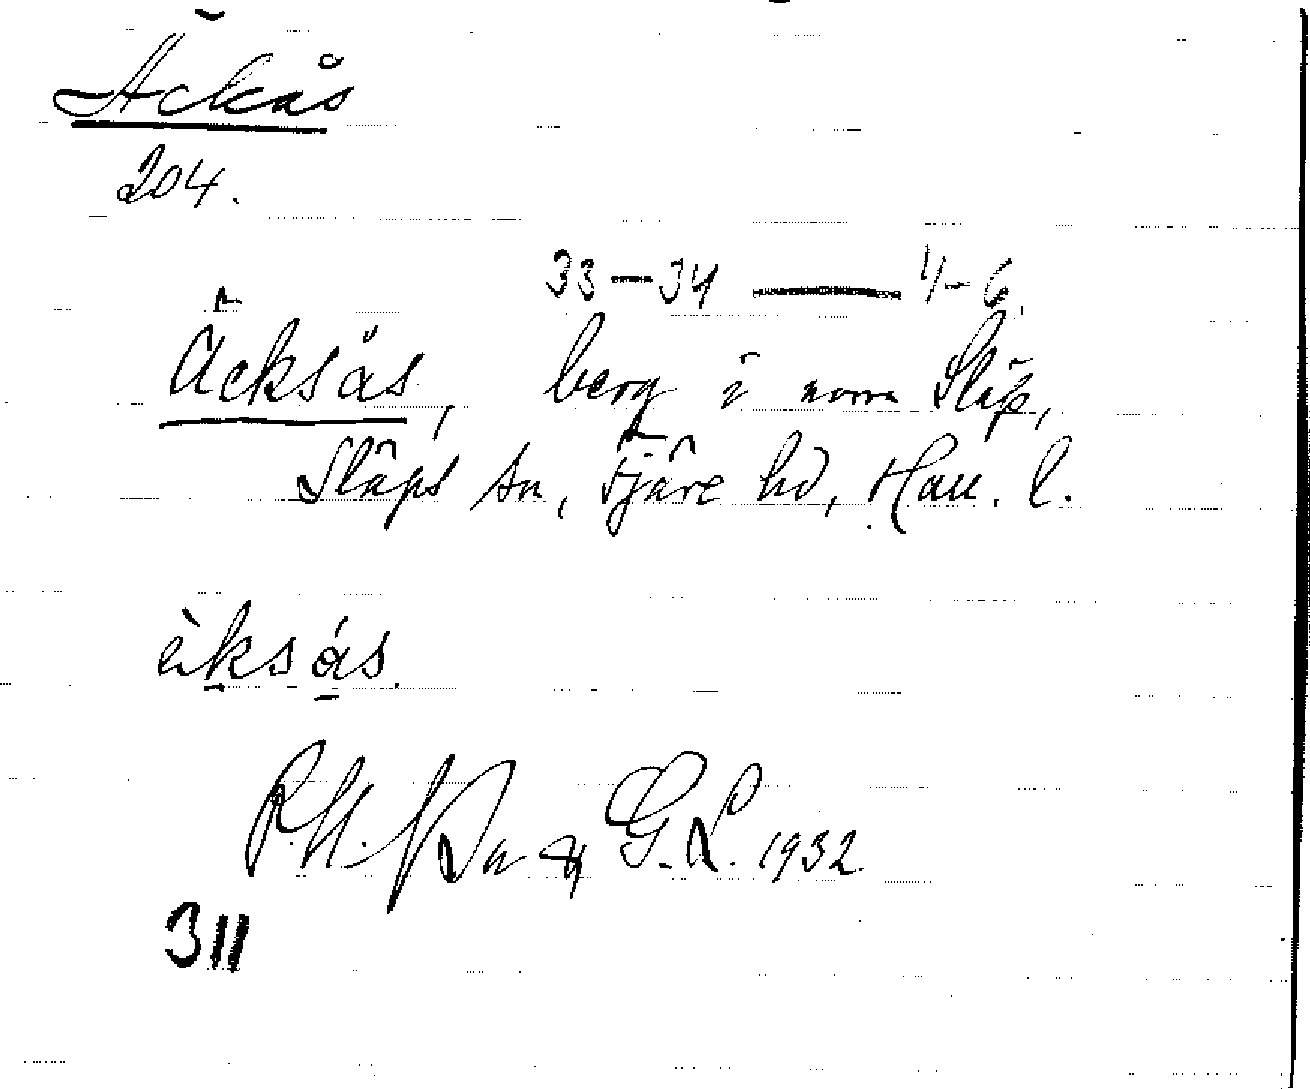 Äckås
204.
33—34 — 4-6.
Äcksås, berg i norra Släp,
Släps sn, Fjäre hd, Hall. l.
èksás.
G. L. 1932
311